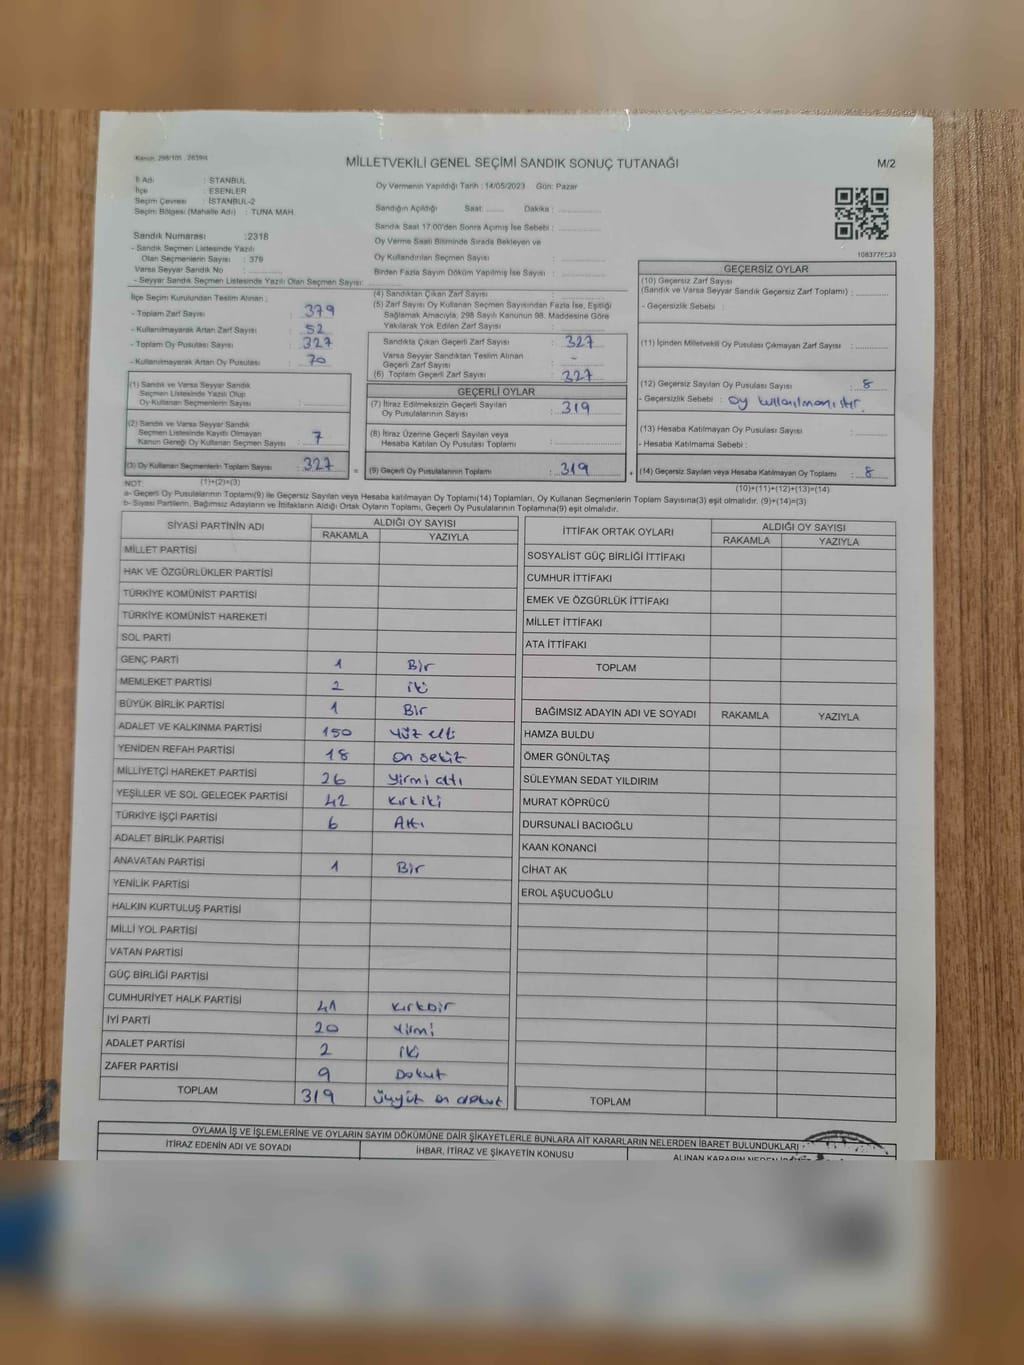 Kanun: 298/105 , 2839/4
MİLLETVEKİLİ GENEL SEÇİMİ SANDIK SONUÇ TUTANAĞI
M/2
İl Adı : İSTANBUL
İlçe : ESENLER
Seçim Çevresi : İSTANBUL-2
Seçim Bölgesi (Mahalle Adı) : TUNA MAH.
Oy Vermenin Yapıldığı Tarih : 14/05/2023 Gün: Pazar
Sandığın Açıldığı Saat: ........ Dakika : ................
Sandık Saat 17:00'den Sonra Açılmış İse Sebebi : ................
Oy Verme Saati Bitiminde Sırada Bekleyen ve
Oy Kullandırılan Seçmen Sayısı : ................
Birden Fazla Sayım Döküm Yapılmış İse Sayısı : ................
1083776533
Sandık Numarası :2318
- Sandık Seçmen Listesinde Yazılı
Olan Seçmenlerin Sayısı : 379
Varsa Seyyar Sandık No : ................
- Seyyar Sandık Seçmen Listesinde Yazılı Olan Seçmen Sayısı: ................
İlçe Seçim Kurulundan Teslim Alınan :
- Toplam Zarf Sayısı : 379
- Kullanılmayarak Artan Zarf Sayısı : 52
- Toplam Oy Pusulası Sayısı : 327
- Kullanılmayarak Artan Oy Pusulası : 70
(1) Sandık ve Varsa Seyyar Sandık
Seçmen Listesinde Yazılı Olup
Oy Kullanan Seçmenlerin Sayısı :
(2) Sandık ve Varsa Seyyar Sandık
Seçmen Listesinde Kayıtlı Olmayan
Kanun Gereği Oy Kullanan Seçmen Sayısı : 7
(3) Oy Kullanan Seçmenlerin Toplam Sayısı : 327
(4) Sandıktan Çıkan Zarf Sayısı : ................
(5) Zarf Sayısı Oy Kullanan Seçmen Sayısından Fazla İse, Eşitliği
Sağlamak Amacıyla, 298 Sayılı Kanunun 98. Maddesine Göre
Yakılarak Yok Edilen Zarf Sayısı : ................
Sandıkta Çıkan Geçerli Zarf Sayısı : 327
Varsa Seyyar Sandıktan Teslim Alınan
Geçerli Zarf Sayısı : -
(6) Toplam Geçerli Zarf Sayısı : 327
GEÇERLİ OYLAR
(7) İtiraz Edilmeksizin Geçerli Sayılan
Oy Pusulalarının Sayısı : 319
(8) İtiraz Üzerine Geçerli Sayılan veya
Hesaba Katılan Oy Pusulası Toplamı : ................
= (9) Geçerli Oy Pusulalarının Toplamı : 319
GEÇERSİZ OYLAR
(10) Geçersiz Zarf Sayısı
(Sandık ve Varsa Seyyar Sandık Geçersiz Zarf Toplamı) : ............
- Geçersizlik Sebebi :
(11) İçinden Milletvekili Oy Pusulası Çıkmayan Zarf Sayısı : ............
(12) Geçersiz Sayılan Oy Pusulası Sayısı : 8
- Geçersizlik Sebebi : Oy kullanılmamıştır.
(13) Hesaba Katılmayan Oy Pusulası Sayısı : ............
- Hesaba Katılmama Sebebi :
+ (14) Geçersiz Sayılan veya Hesaba Katılmayan Oy Toplamı : 8
NOT: (1)+(2)=(3)
(10)+(11)+(12)+(13)=(14)
a- Geçerli Oy Pusulalarının Toplamı(9) ile Geçersiz Sayılan veya Hesaba katılmayan Oy Toplamı(14) Toplamları, Oy Kullanan Seçmenlerin Toplam Sayısına(3) eşit olmalıdır. (9)+(14)=(3)
b- Siyasi Partilerin, Bağımsız Adayların ve İttifakların Aldığı Ortak Oyların Toplamı, Geçerli Oy Pusulalarının Toplamına(9) eşit olmalıdır.
SİYASİ PARTİNİN ADI ALDIĞI OY SAYISI
RAKAMLA YAZIYLA
MİLLET PARTİSİ
HAK VE ÖZGÜRLÜKLER PARTİSİ
TÜRKİYE KOMÜNİST PARTİSİ
TÜRKİYE KOMÜNİST HAREKETİ
SOL PARTİ
GENÇ PARTİ 1 Bir
MEMLEKET PARTİSİ 2 iki
BÜYÜK BİRLİK PARTİSİ 1 Bir
ADALET VE KALKINMA PARTİSİ 150 Yüz elli
YENİDEN REFAH PARTİSİ 18 on sekiz
MİLLİYETÇİ HAREKET PARTİSİ 26 yirmi altı
YEŞİLLER VE SOL GELECEK PARTİSİ 42 kırk iki
TÜRKİYE İŞÇİ PARTİSİ 6 Altı
ADALET BİRLİK PARTİSİ
ANAVATAN PARTİSİ 1 Bir
YENİLİK PARTİSİ
HALKIN KURTULUŞ PARTİSİ
MİLLİ YOL PARTİSİ
VATAN PARTİSİ
GÜÇ BİRLİĞİ PARTİSİ
CUMHURİYET HALK PARTİSİ 41 kırkbir
İYİ PARTİ 20 yirmi
ADALET PARTİSİ 2 iki
ZAFER PARTİSİ 9 Dokuz
TOPLAM 319 üçyüz on dokuz
İTTİFAK ORTAK OYLARI ALDIĞI OY SAYISI
RAKAMLA YAZIYLA
SOSYALİST GÜÇ BİRLİĞİ İTTİFAKI
CUMHUR İTTİFAKI
EMEK VE ÖZGÜRLÜK İTTİFAKI
MİLLET İTTİFAKI
ATA İTTİFAKI
TOPLAM
BAĞIMSIZ ADAYIN ADI VE SOYADI RAKAMLA YAZIYLA
HAMZA BULDU
ÖMER GÖNÜLTAŞ
SÜLEYMAN SEDAT YILDIRIM
MURAT KÖPRÜCÜ
DURSUNALİ BACIOĞLU
KAAN KONANCİ
CİHAT AK
EROL AŞUCUOĞLU
TOPLAM
OYLAMA İŞ VE İŞLEMLERİNE VE OYLARIN SAYIM DÖKÜMÜNE DAİR ŞİKAYETLERLE BUNLARA AİT KARARLARIN NELERDEN İBARET BULUNDUKLARI
İTİRAZ EDENİN ADI VE SOYADI İHBAR, İTİRAZ VE ŞİKAYETİN KONUSU ALINAN KARARIN